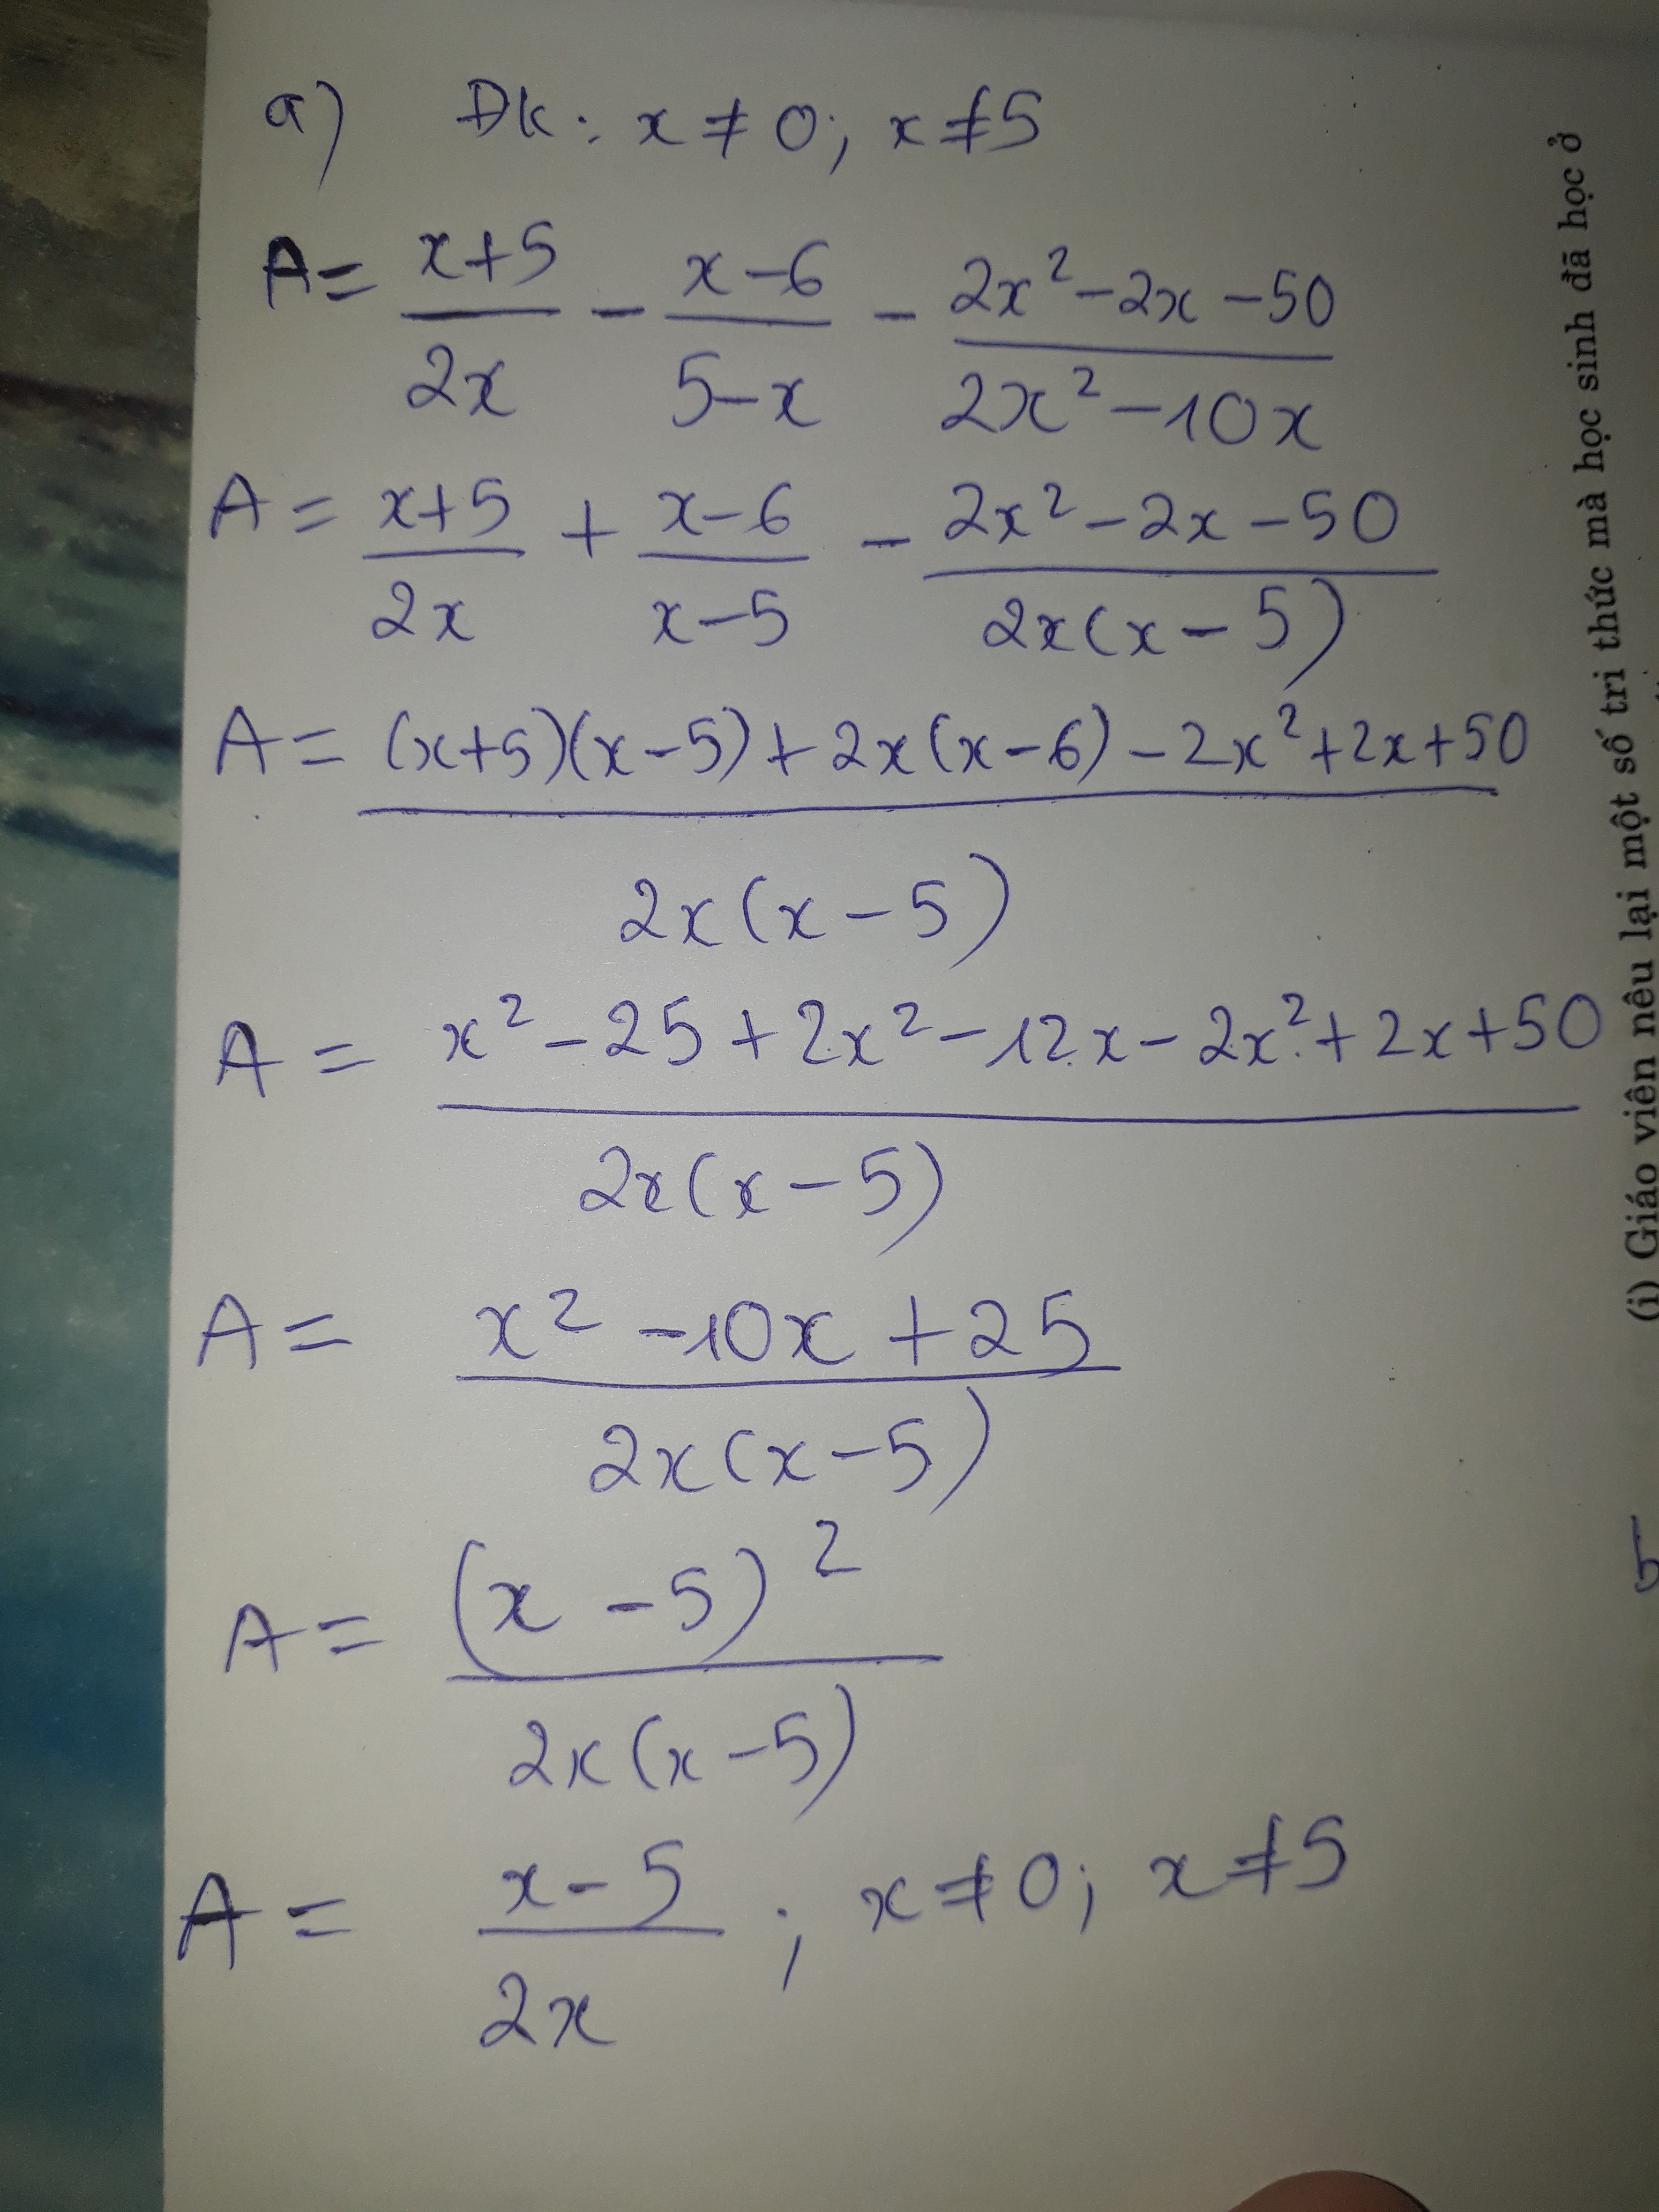 a) ĐK: x ≠ 0; x ≠ 5
A = (x+5)/(2x) - (x-6)/(5-x) - (2x² - 2x - 50)/(2x² - 10x)
A = (x+5)/(2x) + (x-6)/(x-5) - (2x² - 2x - 50)/(2x(x-5))
A = ((x+5)(x-5) + 2x(x-6) - 2x² + 2x + 50)/(2x(x-5))
A = (x² - 25 + 2x² - 12x - 2x² + 2x + 50)/(2x(x-5))
A = (x² - 10x + 25)/(2x(x-5))
A = (x-5)²/(2x(x-5))
A = (x-5)/(2x); x ≠ 0; x ≠ 5
(i) Giáo viên nêu lại một số tri thức mà học sinh đã học ở